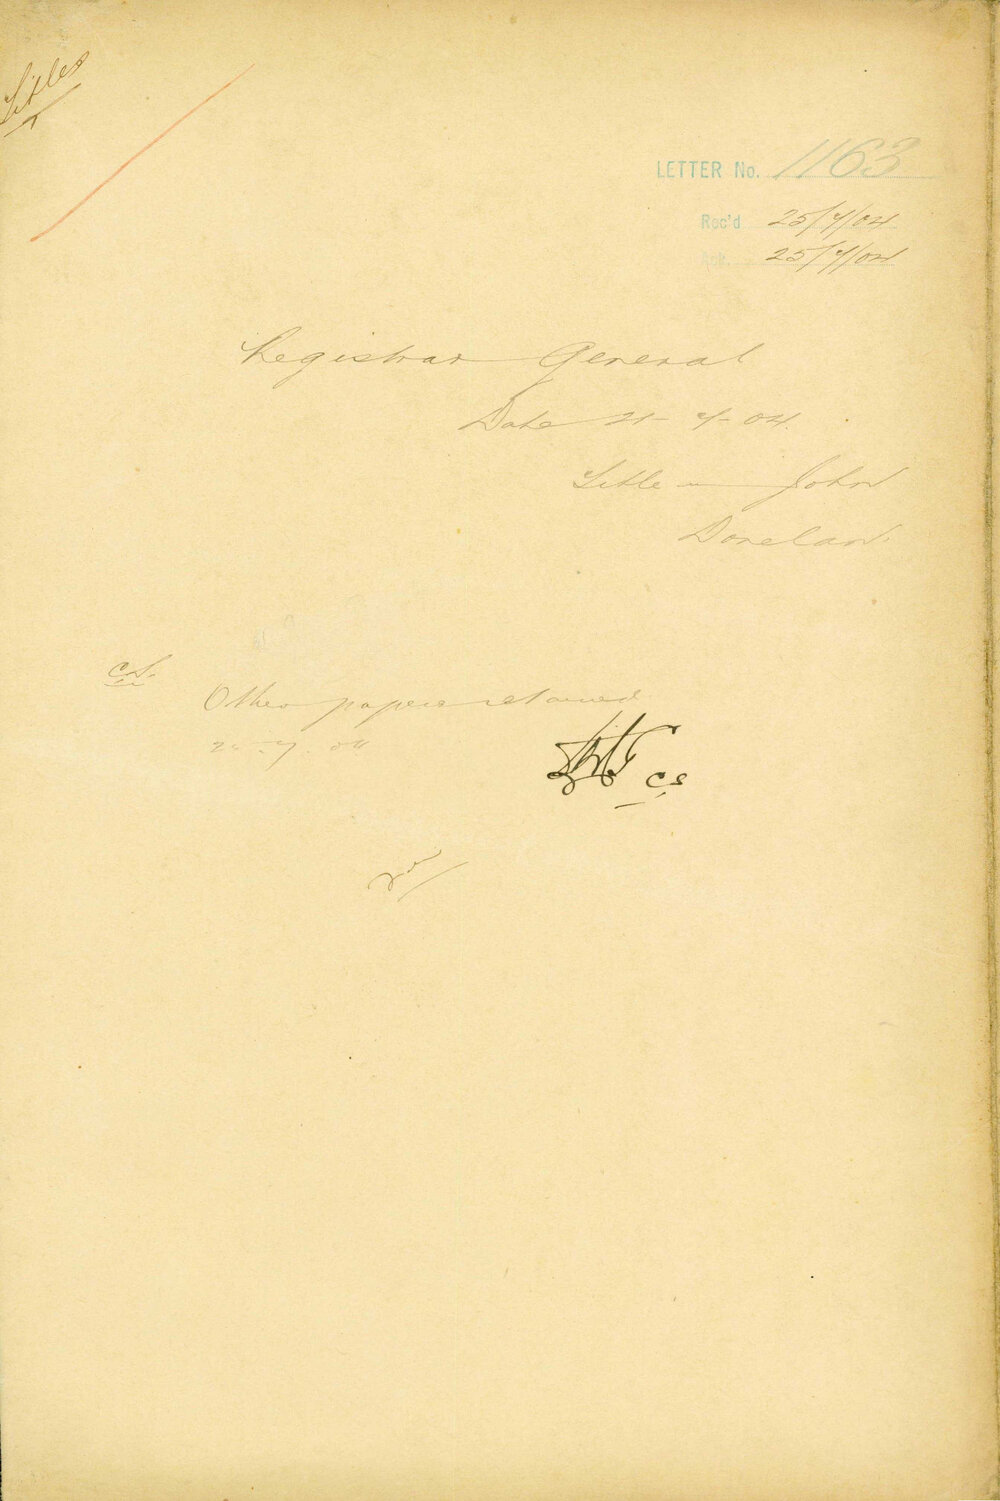 Titles
LETTER No. 1163
Rec'd 25/7/04
Ack. 25/7/04
Registrar General
Date 21-7-04.
Title — John
Donelan
C.S.
Other papers returned
7.04
CS